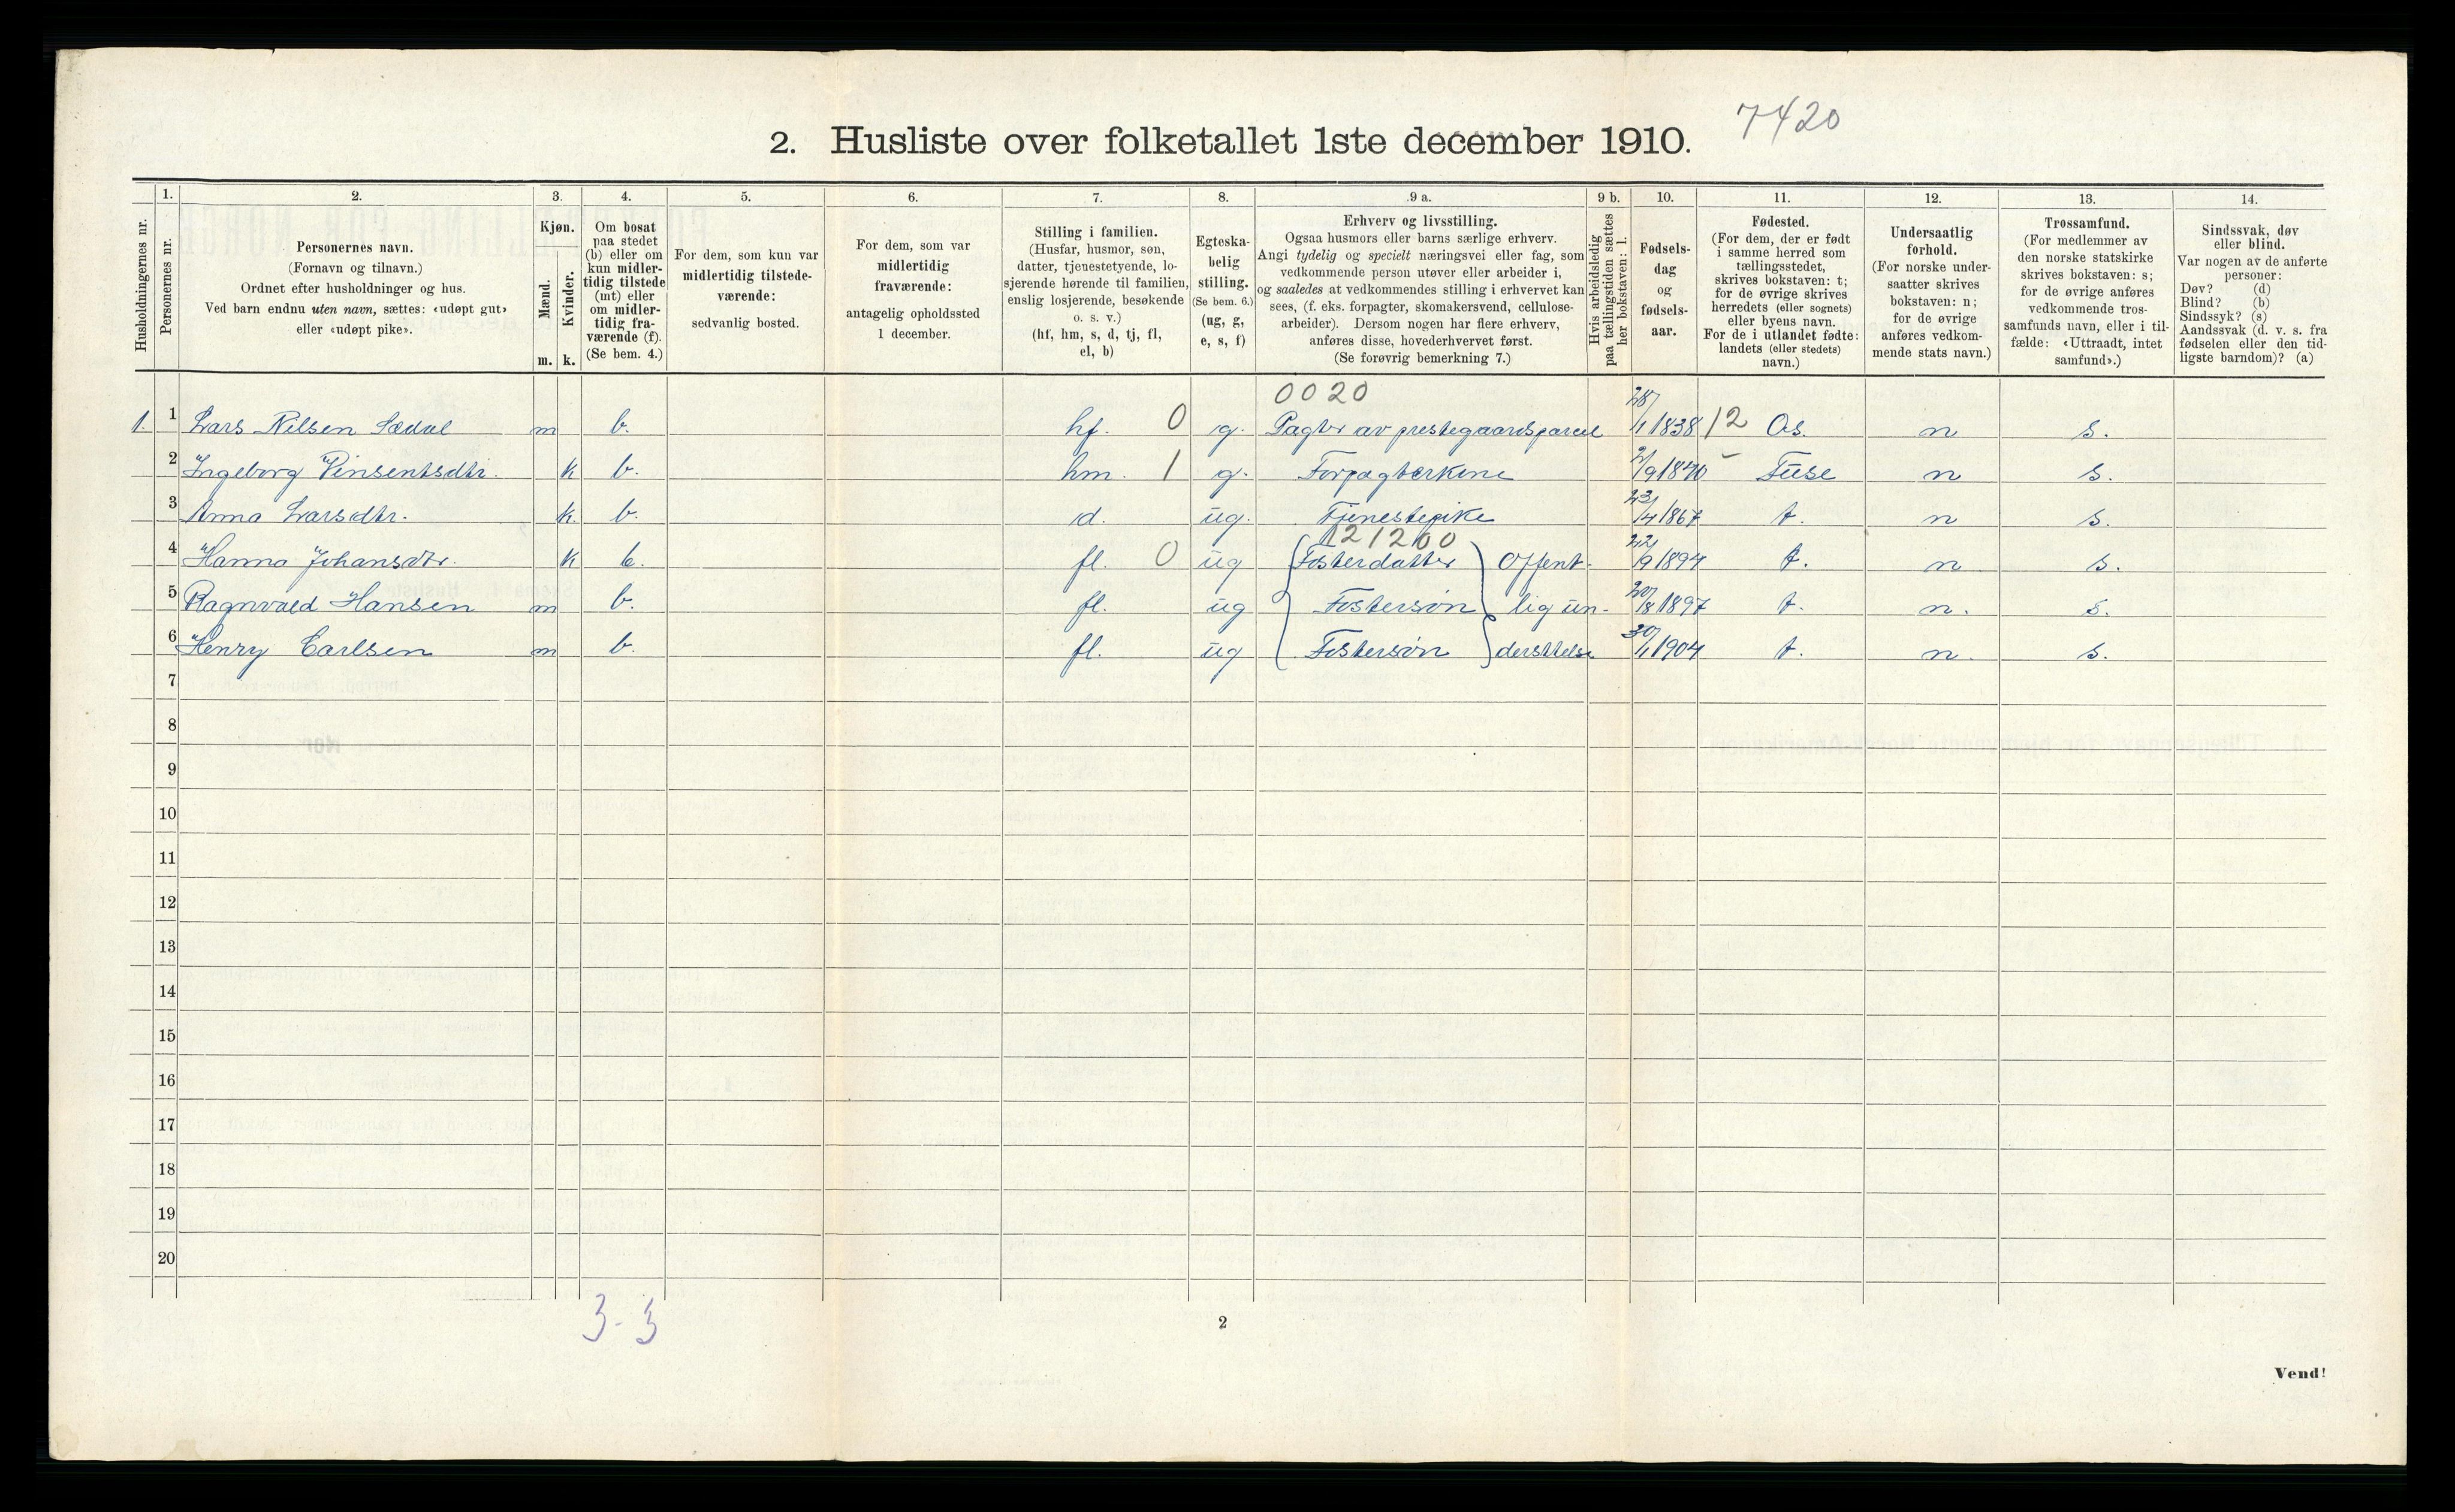 7420
2. Husliste over folketallet 1ste december 1910.
Husholdningernes nr.
1.
Personernes nr.
2.
Personernes navn.
(Fornavn og tilnavn.)
Ordnet efter husholdninger og hus.
Ved barn endnu uten navn, sættes: «udøpt gut»
eller «udøpt pike».
3.
Kjøn.
Mænd.
Kvinder.
m. k.
4.
Om bosat
paa stedet
(b) eller om
kun midler-
tidig tilstede
(mt) eller
om midler-
tidig fra-
værende (f).
(Se bem. 4.)
5.
For dem, som kun var
midlertidig tilstede-
værende:
sedvanlig bosted.
6.
For dem, som var
midlertidig
fraværende:
antagelig opholdssted
1 december.
7.
Stilling i familien.
(Husfar, husmor, søn,
datter, tjenestetyende, lo-
sjerende hørende til familien,
enslig losjerende, besøkende
o. s. v.)
(hf, hm, s, d, tj, fl,
el, b)
8.
Egteska-
belig
stilling.
(Se bem. 6.)
(ug, g,
e, s, f)
9 a.
Erhverv og livsstilling.
Ogsaa husmors eller barns særlige erhverv.
Angi tydelig og specielt næringsvei eller fag, som
vedkommende person utøver eller arbeider i,
og saaledes at vedkommendes stilling i erhvervet kan
sees, (f. eks. forpagter, skomakersvend, cellulose-
arbeider). Dersom nogen har flere erhverv,
anføres disse, hovederhvervet først.
(Se forøvrig bemerkning 7.)
9 b.
Hvis arbeidsledig
paa tællingstiden sættes
her bokstaven: l.
10.
Fødsels-
dag
og
fødsels-
aar.
11.
Fødested.
(For dem, der er født
i samme herred som
tællingsstedet,
skrives bokstaven: t;
for de øvrige skrives
herredets (eller sognets)
eller byens navn.
For de i utlandet fødte:
landets (eller stedets)
navn.)
12.
Undersaatlig
forhold.
(For norske under-
saatter skrives
bokstaven: n;
for de øvrige
anføres vedkom-
mende stats navn.)
13.
Trossamfund.
(For medlemmer av
den norske statskirke
skrives bokstaven: s;
for de øvrige anføres
vedkommende tros-
samfunds navn, eller i til-
fælde: «Uttraadt, intet
samfund».)
14.
Sindssvak, døv
eller blind.
Var nogen av de anførte
personer:
Døv? (d)
Blind? (b)
Sindssyk? (s)
Aandssvak (d. v. s. fra
fødselen eller den tid-
ligste barndom)? (a)
0020
1. 1 Lars Nilsen Sædal m b. hf. 0 g. Pagter av prestegaardsparcel 28/1 1838 12 Os. n s.
2 Ingeborg Vinsentsdtr. k b. hm. 1 g. Forpagterkone 2/9 1840 Fuse n s.
3 Anna Larsdtr. k. b. d. ug. Tjenestepike 23/4 1867 t. n s.
121200
4 Hanna Johansdtr. k b. fl. 0 ug Fosterdatter Offent- 22/9 1894 t. n s.
5 Ragnvald Hansen m b. fl. ug Fostersøn lig un- 20/8 1897 t. n. s.
6 Henry Carlsen m b. fl. ug Fostersøn dersttelse 30/1 1904 t. n. s.
7
8
9
10
11
12
13
14
15
16
17
18
19
20
3-3
2
Vend!